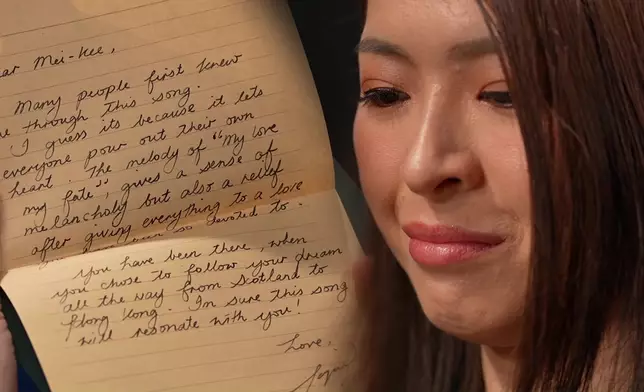 ar Mei-Kee,
Many people first knew
e through this song.
I guess its because it lets
everyone pour out their own
heart. The melody of "My love
my fate", gives a sense of
melancholy but also a relief
after giving everything to a love
so devoted to.
you have been there, when
you chose to follow your dream
all the way from Scotland to
Hong Kong. Im sure this song
will resonate with you!
Love,